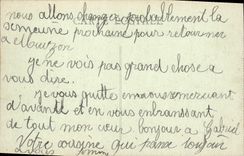 nous allons changer probablement la
semeune prochaine pour retourner
a Mouzon
CARTE POSTALE
je ne vois pas grand chose a
vous dire.
je vous quitte en vous remerciant
d'avantt et en vous enbrassant
de tout mon cœur. bonjour a Gabriel
Votre cousine qui pense toujour